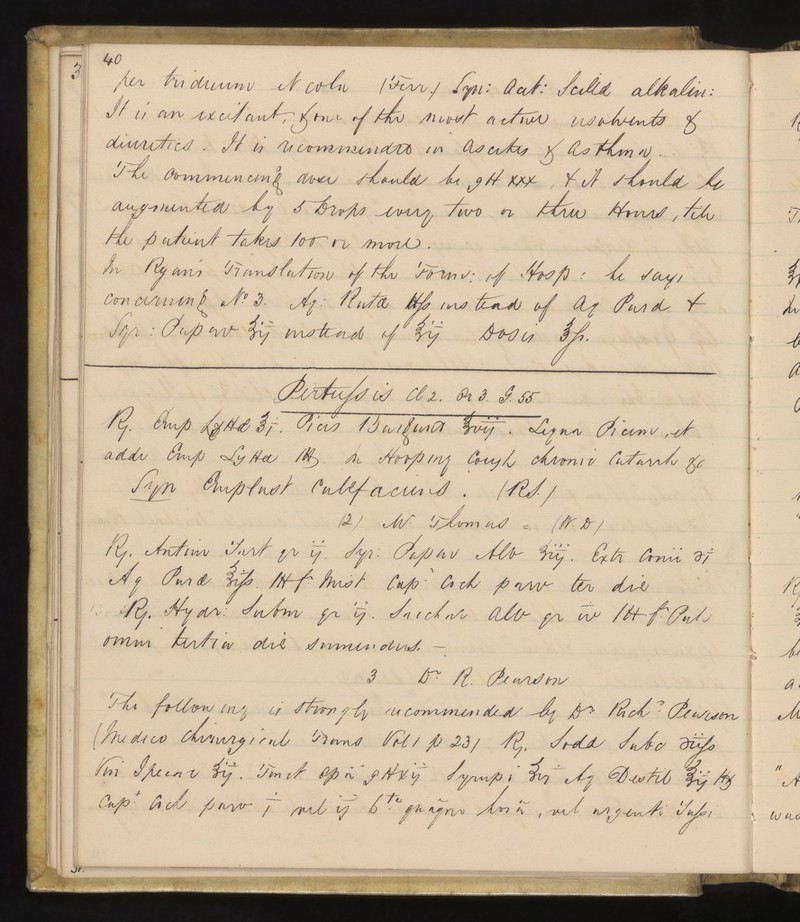 40
3
per triduum et cola (Ferr.) Syn: Acet: Scillæ alkalin:
It is an excitant, & one of the most active resolvents &
diuretics. It is recommended in Ascites & Asthma.
The commencing dose should be gtt xxx, & it should be
augmented by 5 Drops every two or three Hours, till
the patient takes 100 or more.
In Ryan's Translation of the Form: of Hosp: he says
concerning No 3. Aq: Rutæ ℔ß instead of Aq Puræ &
Syr: Papav ʒij instead of ʒij Dosis ℥ß.
Pertussis Cl 2. Or 3. G. 55
℞. Emp Lyttæ ℥j. Picis Burgund ℥vij. Liqua Picem, et
adde Emp Lyttæ M. In Hooping Cough chronic Catarrh &c
Syn Emplast Calefaciens. (R.S.)
(2) Mr Thomas = (W.D)
℞. Antim Tart gr ij. Syr: Papav Alb ʒiij. Extr Conii ℈i
Aq Puræ ℥ijß. M ft Mist Capt Coch parv ter die
℞. Hydr: Subm gr ij. Sacchar alb gr iv M ft Pulv
omni tertia die sumendus. —
3 Dr R. Pearson
The following is strongly recommended by Dr Richd Pearson
(Medico Chirurgical Trans Vol 1 p 23) ℞. Soda Subc ℈ijß
Vin Ipecac ʒij. Tinct Opii gtt xij Syrupi ʒvi Aq Destil ℥ij M
Capt Coch parv j vel ij 6ta quaque hora, vel urgenti Tussi